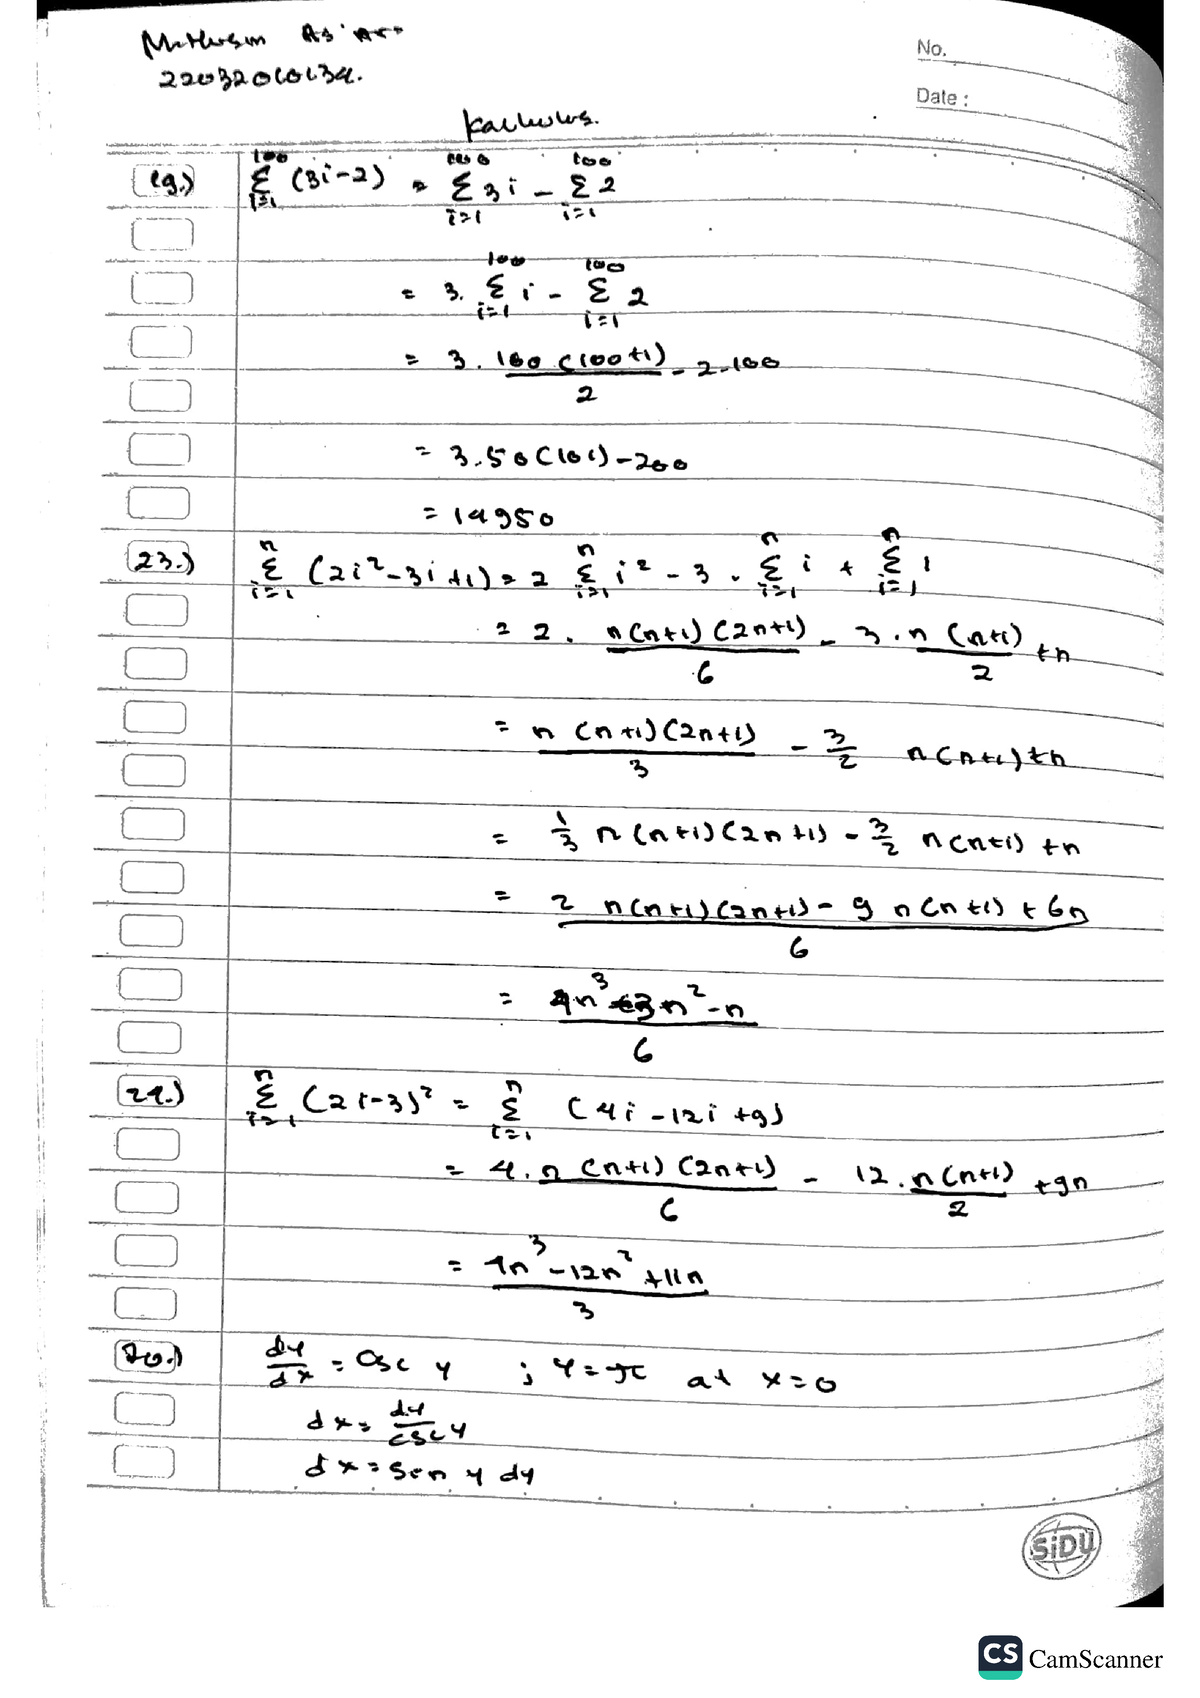 22032010134.
No.
Date :
Kalkulus.
19.) 100 Σ i=1 (3i-2) = 100 Σ i=1 3i - 100 Σ i=1 2
= 3. 100 Σ i=1 i - 100 Σ i=1 2
= 3. 100 (100+1) / 2 - 2.100
= 3.50 (101) - 200
= 14950
23.) n Σ i=1 (2i² - 3i + 1) = 2 n Σ i=1 i² - 3 . n Σ i=1 i + n Σ i=1 1
= 2 . n(n+1) (2n+1) / 6 - 3 . n (n+1) / 2 + n
= n (n+1) (2n+1) / 3 - 3/2 n(n+1) + n
= 1/3 n (n+1) (2n+1) - 3/2 n(n+1) + n
= 2 n(n+1) (2n+1) - 9 n(n+1) + 6n / 6
= 4n³ - 3n² - n / 6
24.) n Σ i=1 (2i-3)² = n Σ i=1 (4i - 12i + 9)
= 4. n (n+1) (2n+1) / 6 - 12. n(n+1) / 2 + 9n
= 4n³ - 12n² + 11n / 3
dy/dx = Csc y ; y = π at x = 0
dx = dy / csc y
dx = sin y dy
SiDU
CS CamScanner